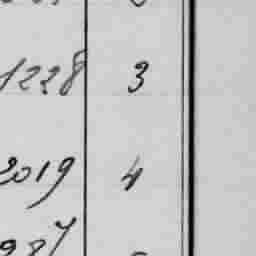 1228 3
2019 4